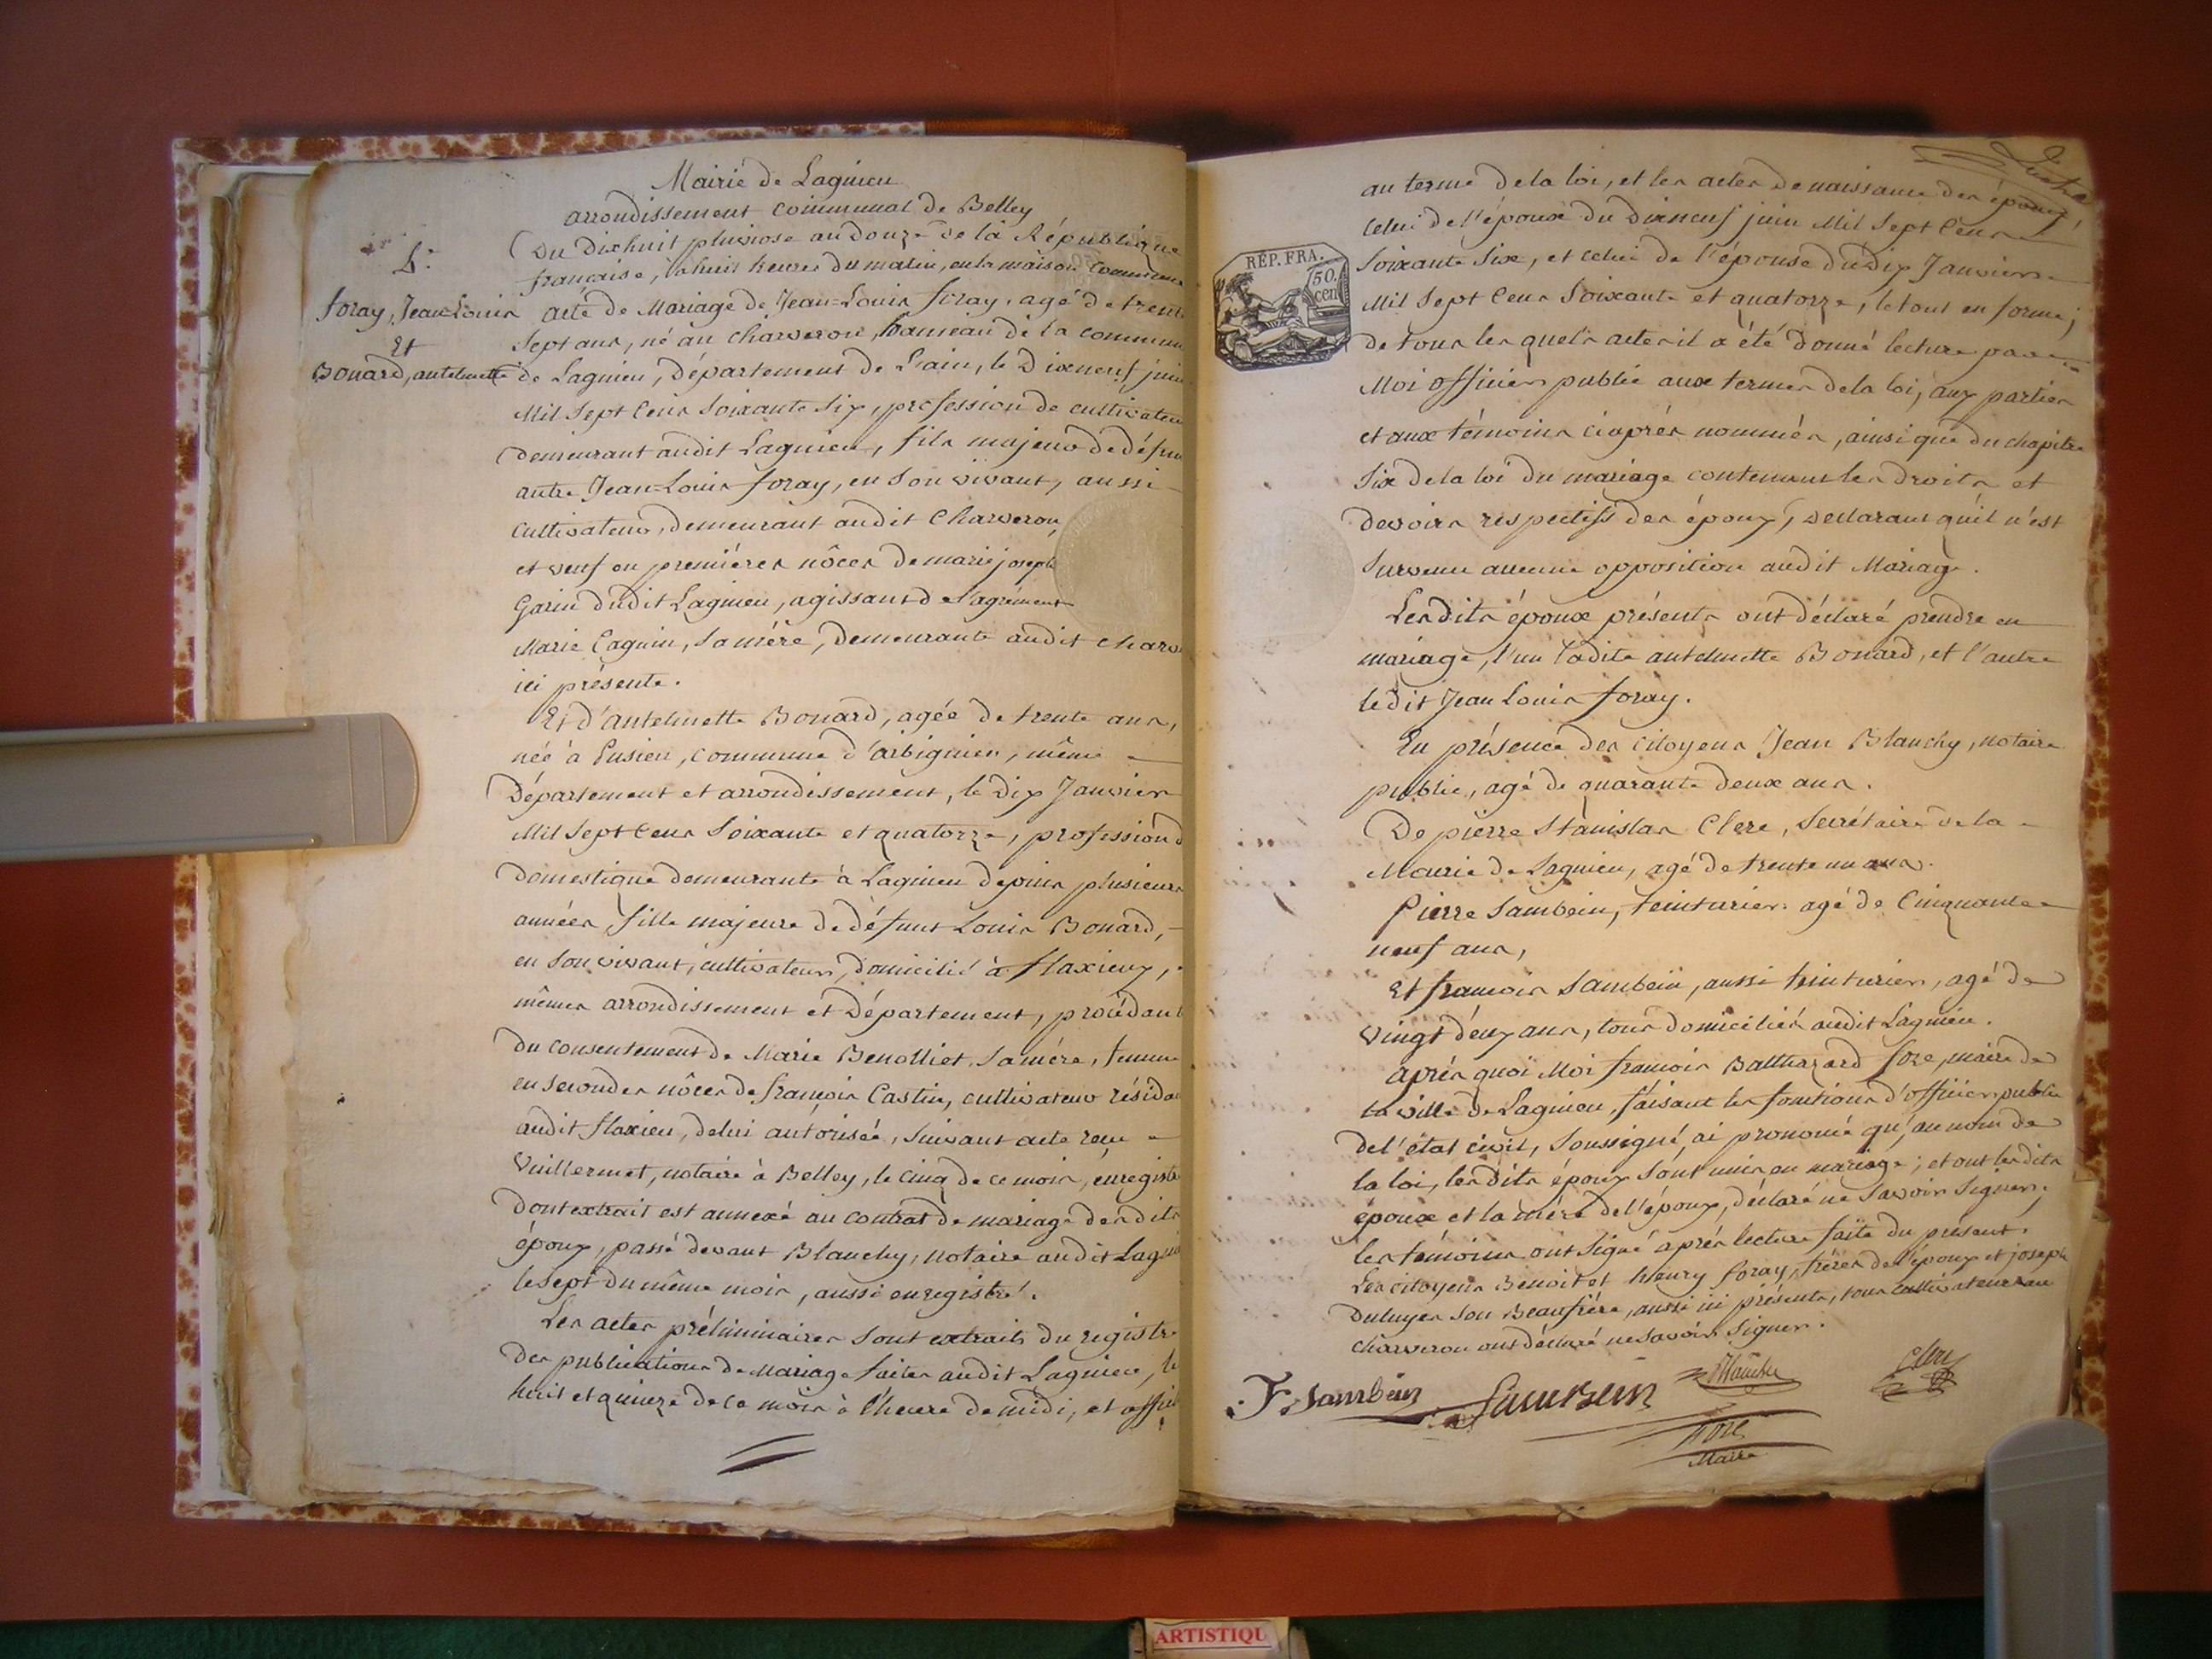 Mairie de Lagnieu
arrondissement communal de Belley
Du dixhuit pluviose an douze de la République
française, à huit heures du matin, en la maison commune
4.e
foray, Jean=Louis
Et
Bonard, antelmette
acte de Mariage de Jean=Louis foray, agé de trente
sept ans, né au charveron, hameau de la commune
de Lagnieu, département de L'ain, le dixneuf juin
Mil Sept Cens Soixante Six, profession de cultivateur
demeurant audit Lagnieu, fils majeur de défun
autre Jean=Louis foray, en Son vivant, aussi
cultivateur, demeurant audit Charveron,
et veuf en premières nôces de marie joseph
Garin dudit Lagnieu, agissant de l'agrément
Marie Cagnin, Sa mère, demeurante audit charv
ici présente.
Et d'antelmette Bonard, agée de trente ans,
née à Pusieu, commune d'arbignieu, même
Département et arrondissement, le dix Janvier
Mil Sept Cens Soixante et quatorze, profession d
domestique demeurante à Lagnieu depuis plusieurs
années, fille majeure de défunt Louis Bonard,
en Son vivant, cultivateur, domicilié à flaxieux,
mêmes arrondissement et Département, procédant
du consentement de Marie Benolliet, Sa mère, femme
en secondes nôces de françois Castin, cultivateur résidan
audit flaxieu, de lui autorisée, Suivant acte reçu
Vuillermet, notaire à Belley, le cinq de ce mois, enregistré
dont extrait est annexé au contrat de mariage desdits
époux, passé devant Blanchy, notaire audit Lagnie
le sept du même mois, aussi enregistré.
Les actes préliminaires Sont extraits du registre
des publications de Mariage faites audit Lagnieu, le
huit et quinze de ce mois à l'heure de midi, et affic
au terme de la loi, et les actes de naissance des époux,
Celui de l'époux du dixneuf juin Mil Sept Cens
RÉP. FRA.
50.
cen
Soixante Six, et celui de l'épouse du dix Janvier
Mil Sept Cens Soixante et quatorze, le tout en forme;
de tous les quels actes il a été donné lecture par
Moi officier public aux termes de la loi, aux parties
et aux témoins ciaprès nommés, ainsi que du chapitre
Six de la loi du mariage contenant les droits et
devoirs respectifs des époux, declarant qu'il n'est
Survenu aucune opposition audit Mariage.
Lesdits époux présents ont déclaré prendre en
mariage, l'un ladite antelmette Bonard, et l'autre
ledit Jean Louis foray.
En présence des citoyens Jean Blanchy, notaire
public, agé de quarante deux ans.
De pierre Stanislas Clerc, Secrétaire de la
Mairie de Lagnieu, agé de trente un ans.
Pierre Sambein, teinturier agé de Cinquante
neuf ans,
Et françois Sambein, aussi teinturier, agé de
vingt deux ans, tous domiciliés audit Lagnieu.
après quoi Moi françois Balthazard fore, maire de
la ville de Lagnieu, faisant les fonctions d'officier public
de l'état civil, Soussigné, ai prononcé qu'au nom de
la loi, lesdits époux Sont unis en mariage; et ont lesdits
époux et la mère de l'époux, déclaré ne Savoir Signer;
les témoins ont Signé après lecture faite du présent.
Les citoyens Benoit et henry foray, frères de l'époux et joseph
Duluyer Son Beaufrère, aussi ici présents, tous cultivateurs au
charveron ont déclaré ne Savoir Signer.
F. Sambein
Sambein
Blanchy
Clerc
fore
Maire
ARTISTIQU